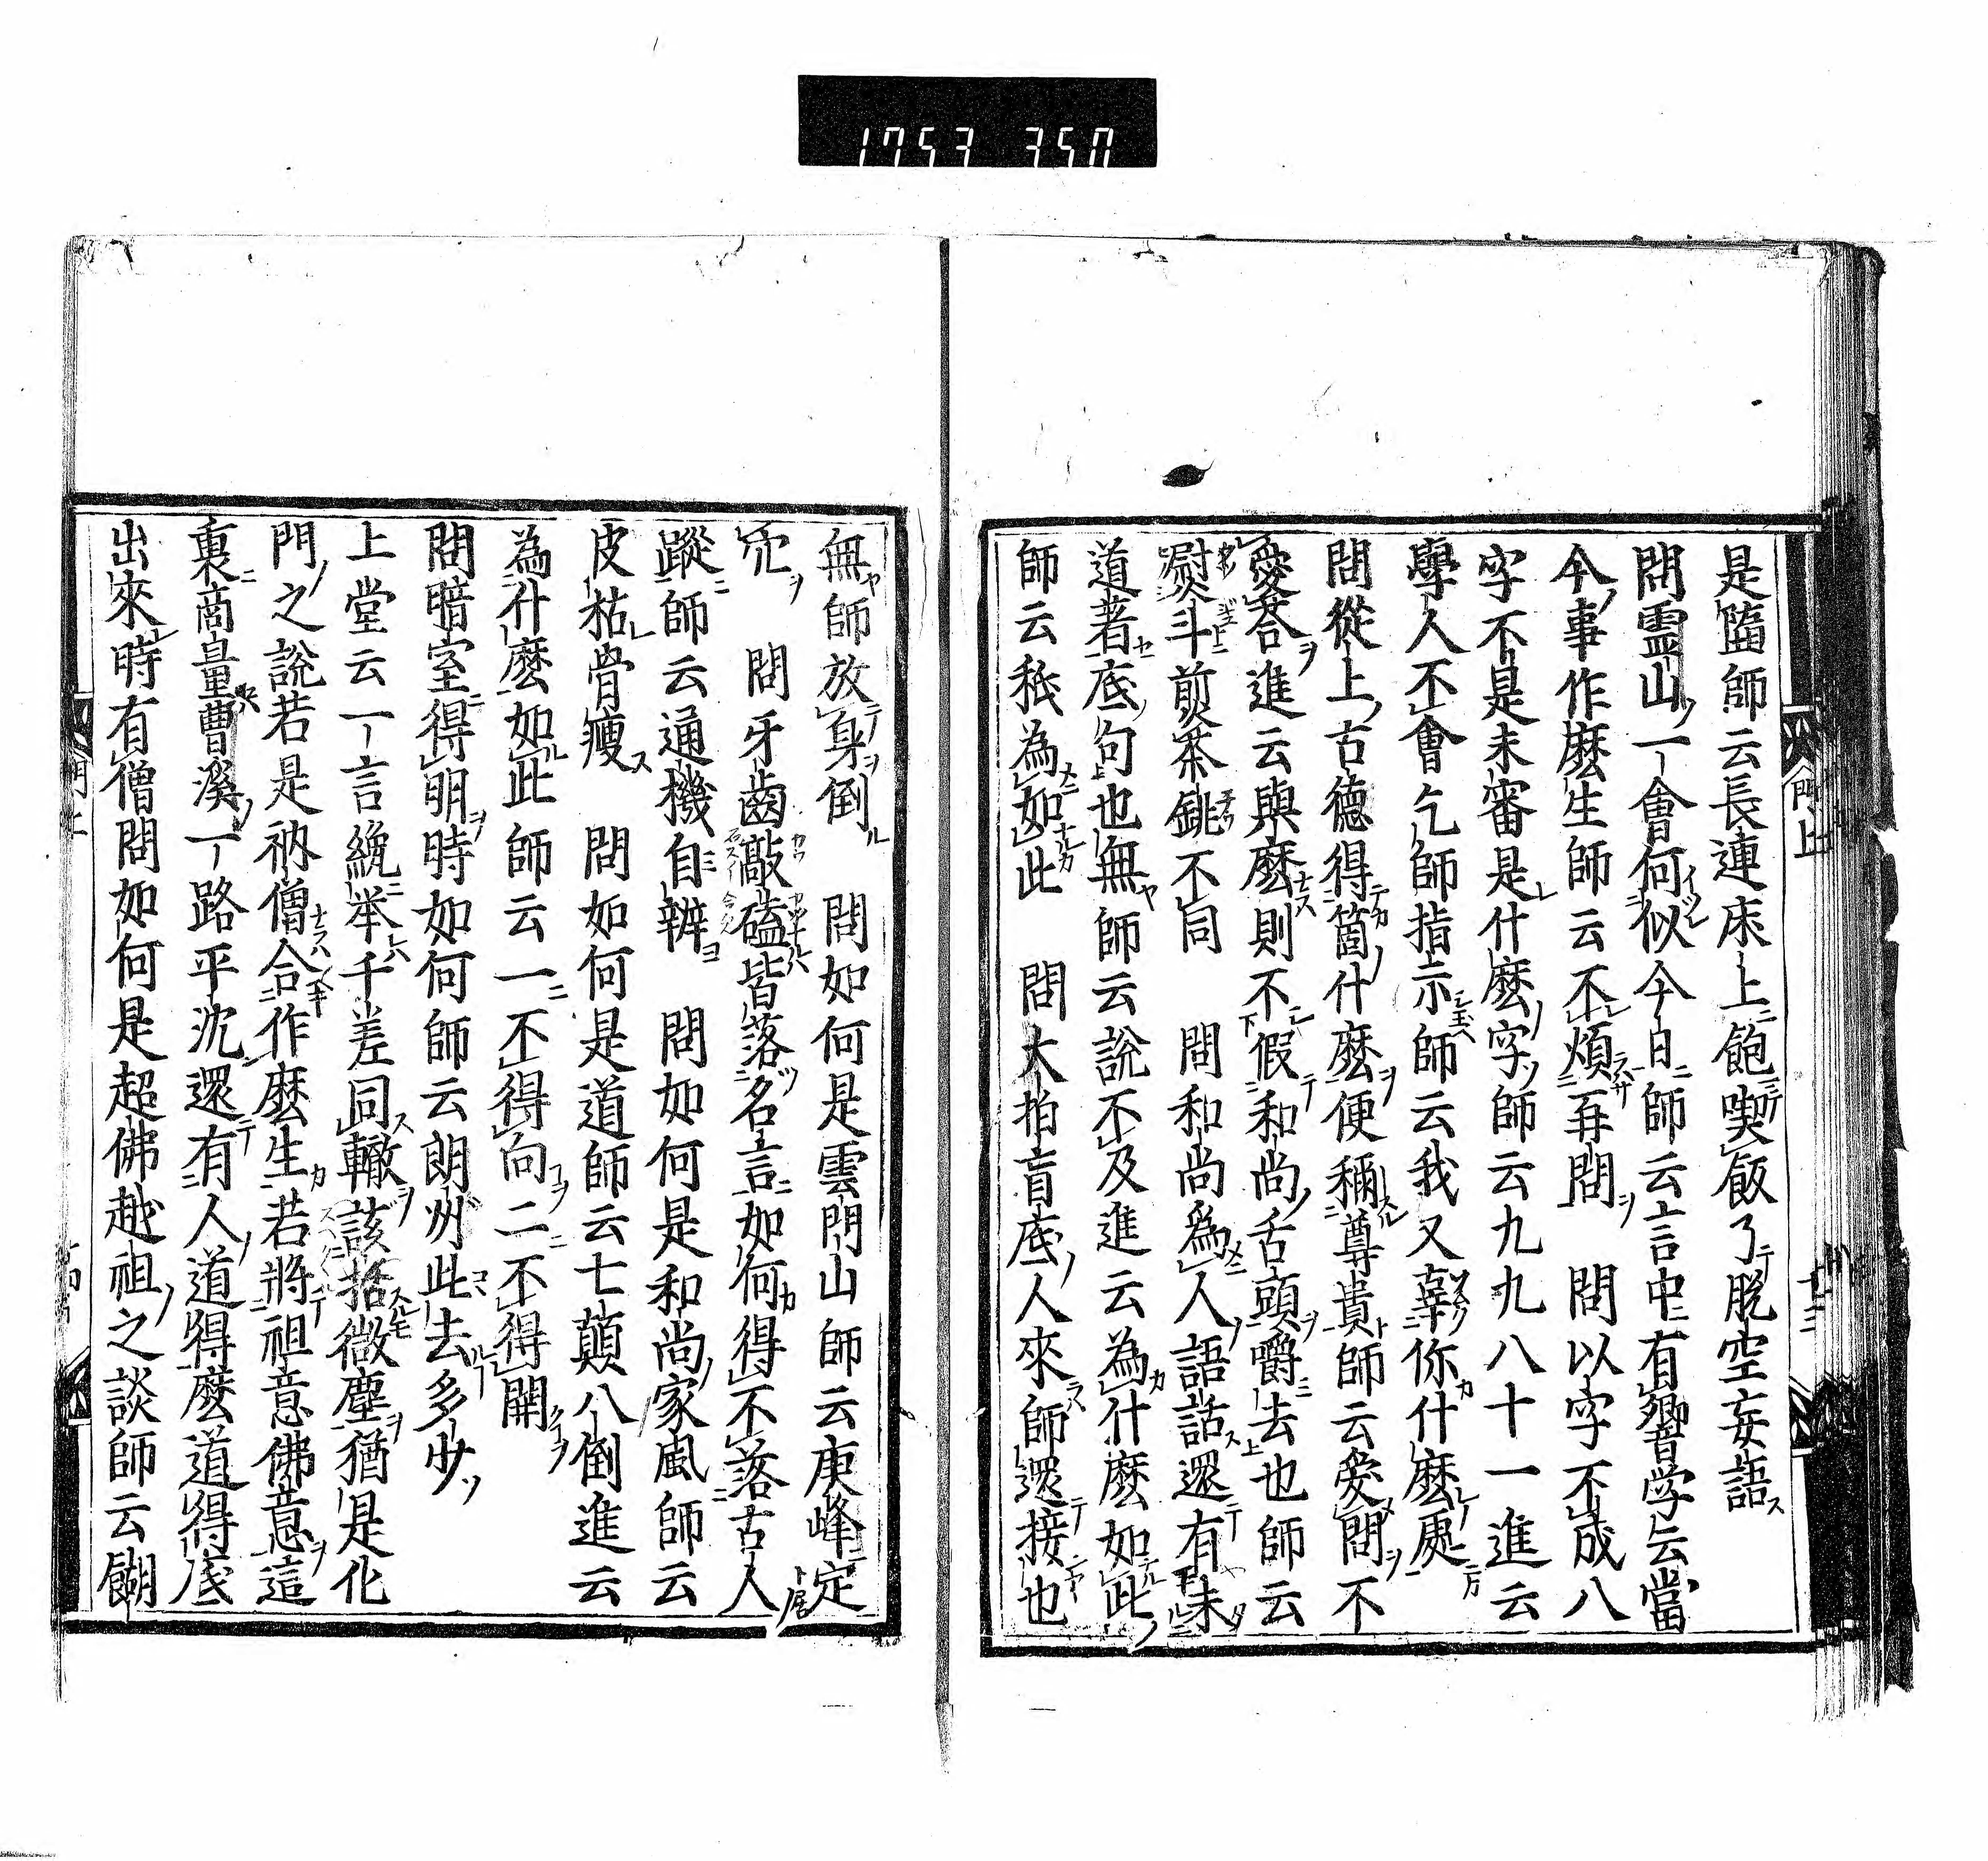 1753 350
是臨師云長連床上飽喫飯了脫空妄語
問霊山一會何似今日師云言中有響学云當
今事作麽生師云不煩再問　問以字不成八
字不是未審是什麽字師云九九八十一進云
學人不會乞師指示師云我又辜你什麽處
問從上古德得箇什麽便稱尊貴師云愛問不
愛荅進云與麽則不假和尚舌頭嚼去也師云
熨斗煎茶銚不同　問和尚爲人語話還有未
道著底句也無師云說不及進云為什麽如此
師云秖為如此　問大拍盲底人來師還接也
無師放身倒　問如何是雲門山師云庚峰定
穴　問牙齒敲磕皆落名言如何得不落古人
蹤師云通機自辨　問如何是和尚家風師云
皮枯骨瘦　問如何是道師云七顛八倒進云
為什麽如此師云一不得向二不得開
問暗室得明時如何師云朗州此去多少
上堂云一言纔举千差同轍該括微塵猶是化
門之說若是衲僧合作麽生若將祖意佛意這
裏商量曹溪一路平沈還有人道得麽道得底
出來時有僧問如何是超佛越祖之談師云餬
門上
十三